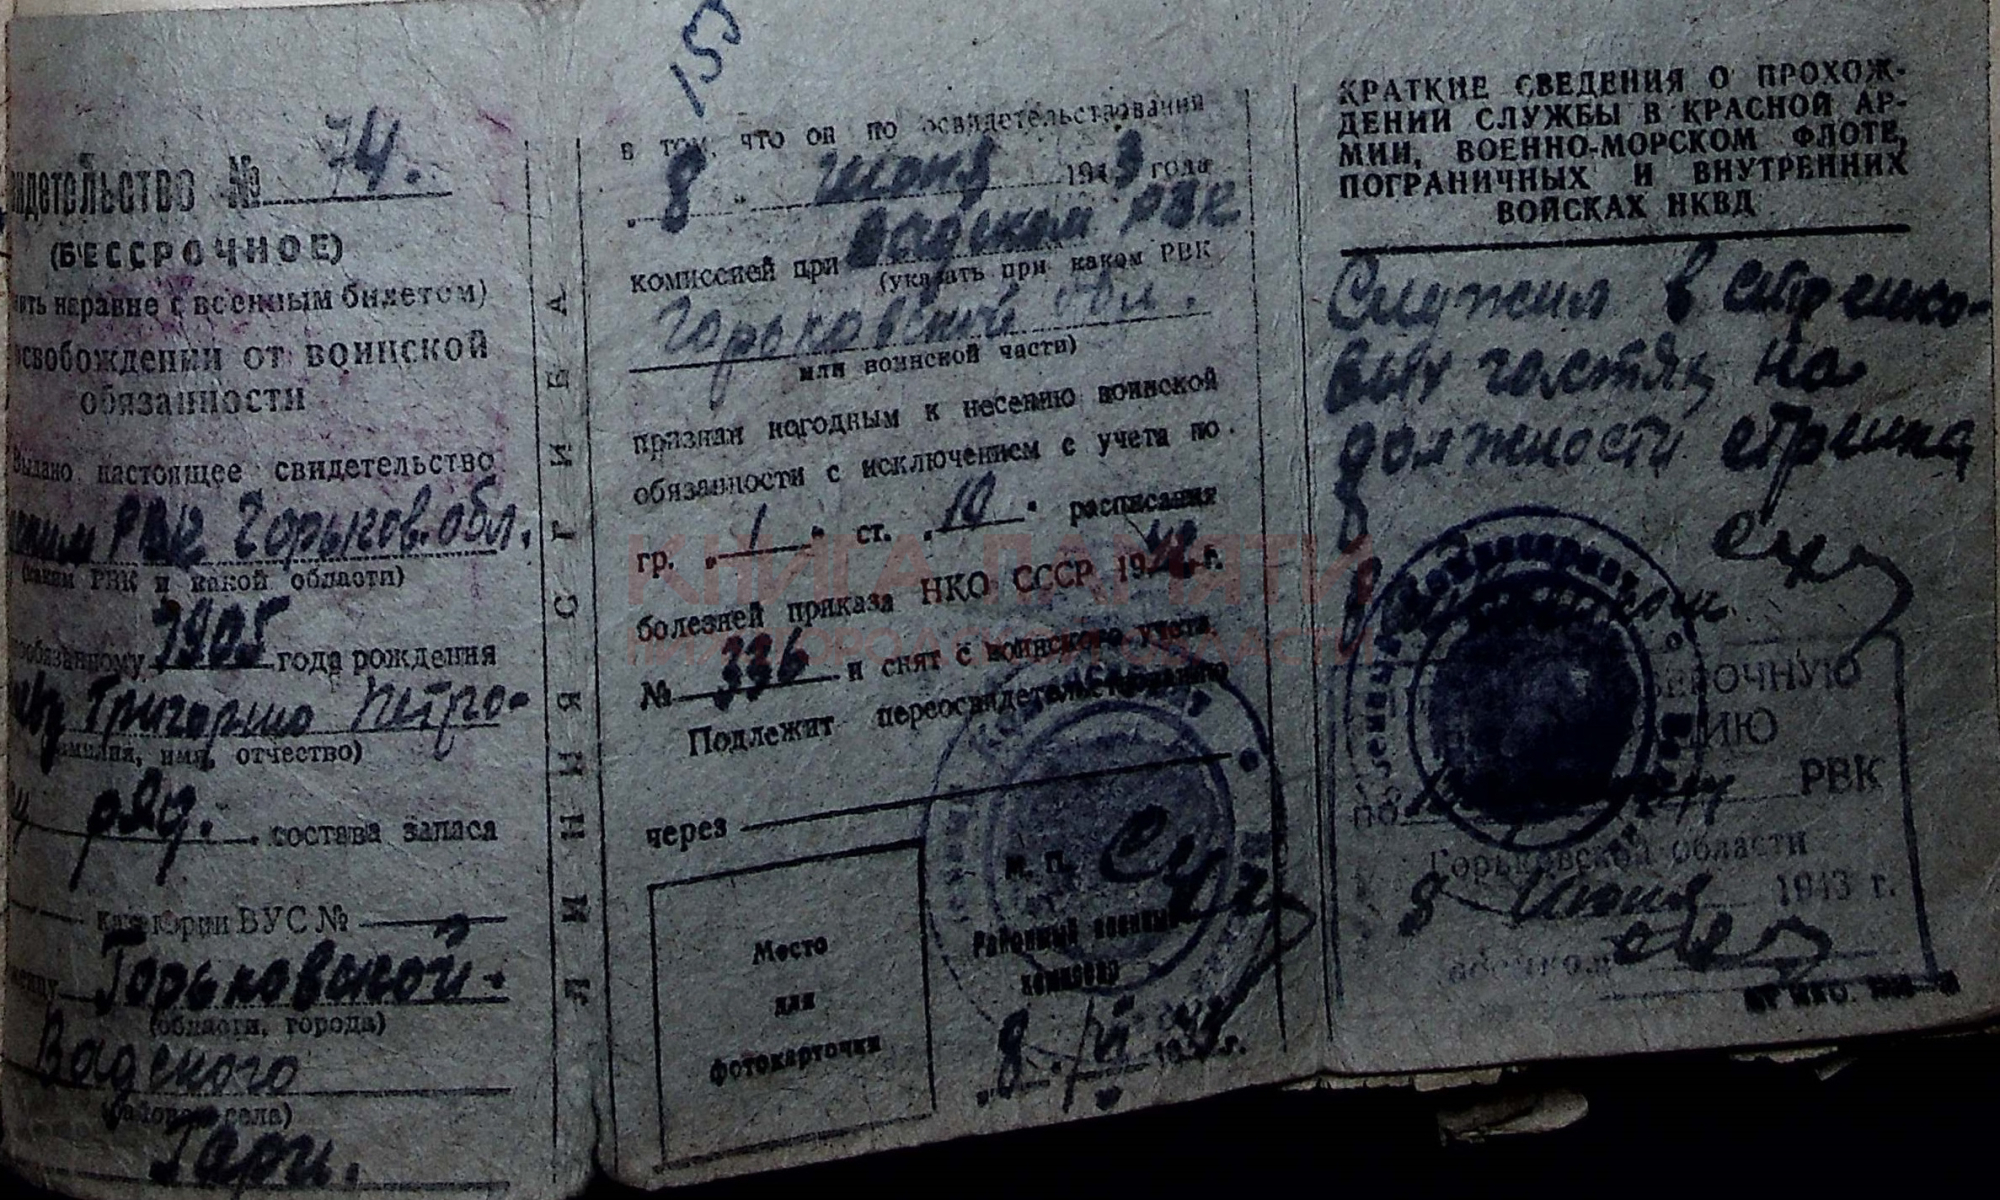 153
идетельство № 74.
(БЕССРОЧНОЕ)
ить наравне с военным билетом)
свобождении от воинской
обязанности
Выдано настоящее свидетельство
ским РВК Горьков. обл.
(каким РВК и какой области)
нообязанному 1905 года рождения
еву Григорию Петро-
амилия, имя, отчество)
ряд. состава запаса
категории ВУС №
женцу Горьковской
(области, города)
Вадского
(района, села)
Гари.
ЛИНИЯ СГИБА
в том, что он по освидетельствования
„ 8 " июня 1943 года
комиссией при Вадском РВК
(указать при каком РВК
Горьковской обл.
или воинской части)
признан негодным к несению воинской
обязанности с исключением с учета по
гр. „ 1 " ст. „ 10 " расписания
болезней приказа НКО СССР 1942 г.
№ 336 и снят с воинского учета
Подлежит переосвидетельствованию
через
Место
для
фотокарточки
М. П.
Районный военный
комиссар
„ 8 " VI 1943 г.
КРАТКИЕ СВЕДЕНИЯ О ПРОХОЖ-
ДЕНИИ СЛУЖБЫ В КРАСНОЙ АР-
МИИ, ВОЕННО-МОРСКОМ ФЛОТЕ,
ПОГРАНИЧНЫХ И ВНУТРЕННИХ
ВОЙСКАХ НКВД
Служил в стрелко-
вых частях на
должности стрелка
ВЕРОЧНУЮ
ЦИЮ
по РВК
Горьковской области
8 июня 1943 г.
КНИГА ПАМЯТИ
НИЖЕГОРОДСКОЙ ОБЛАСТИ